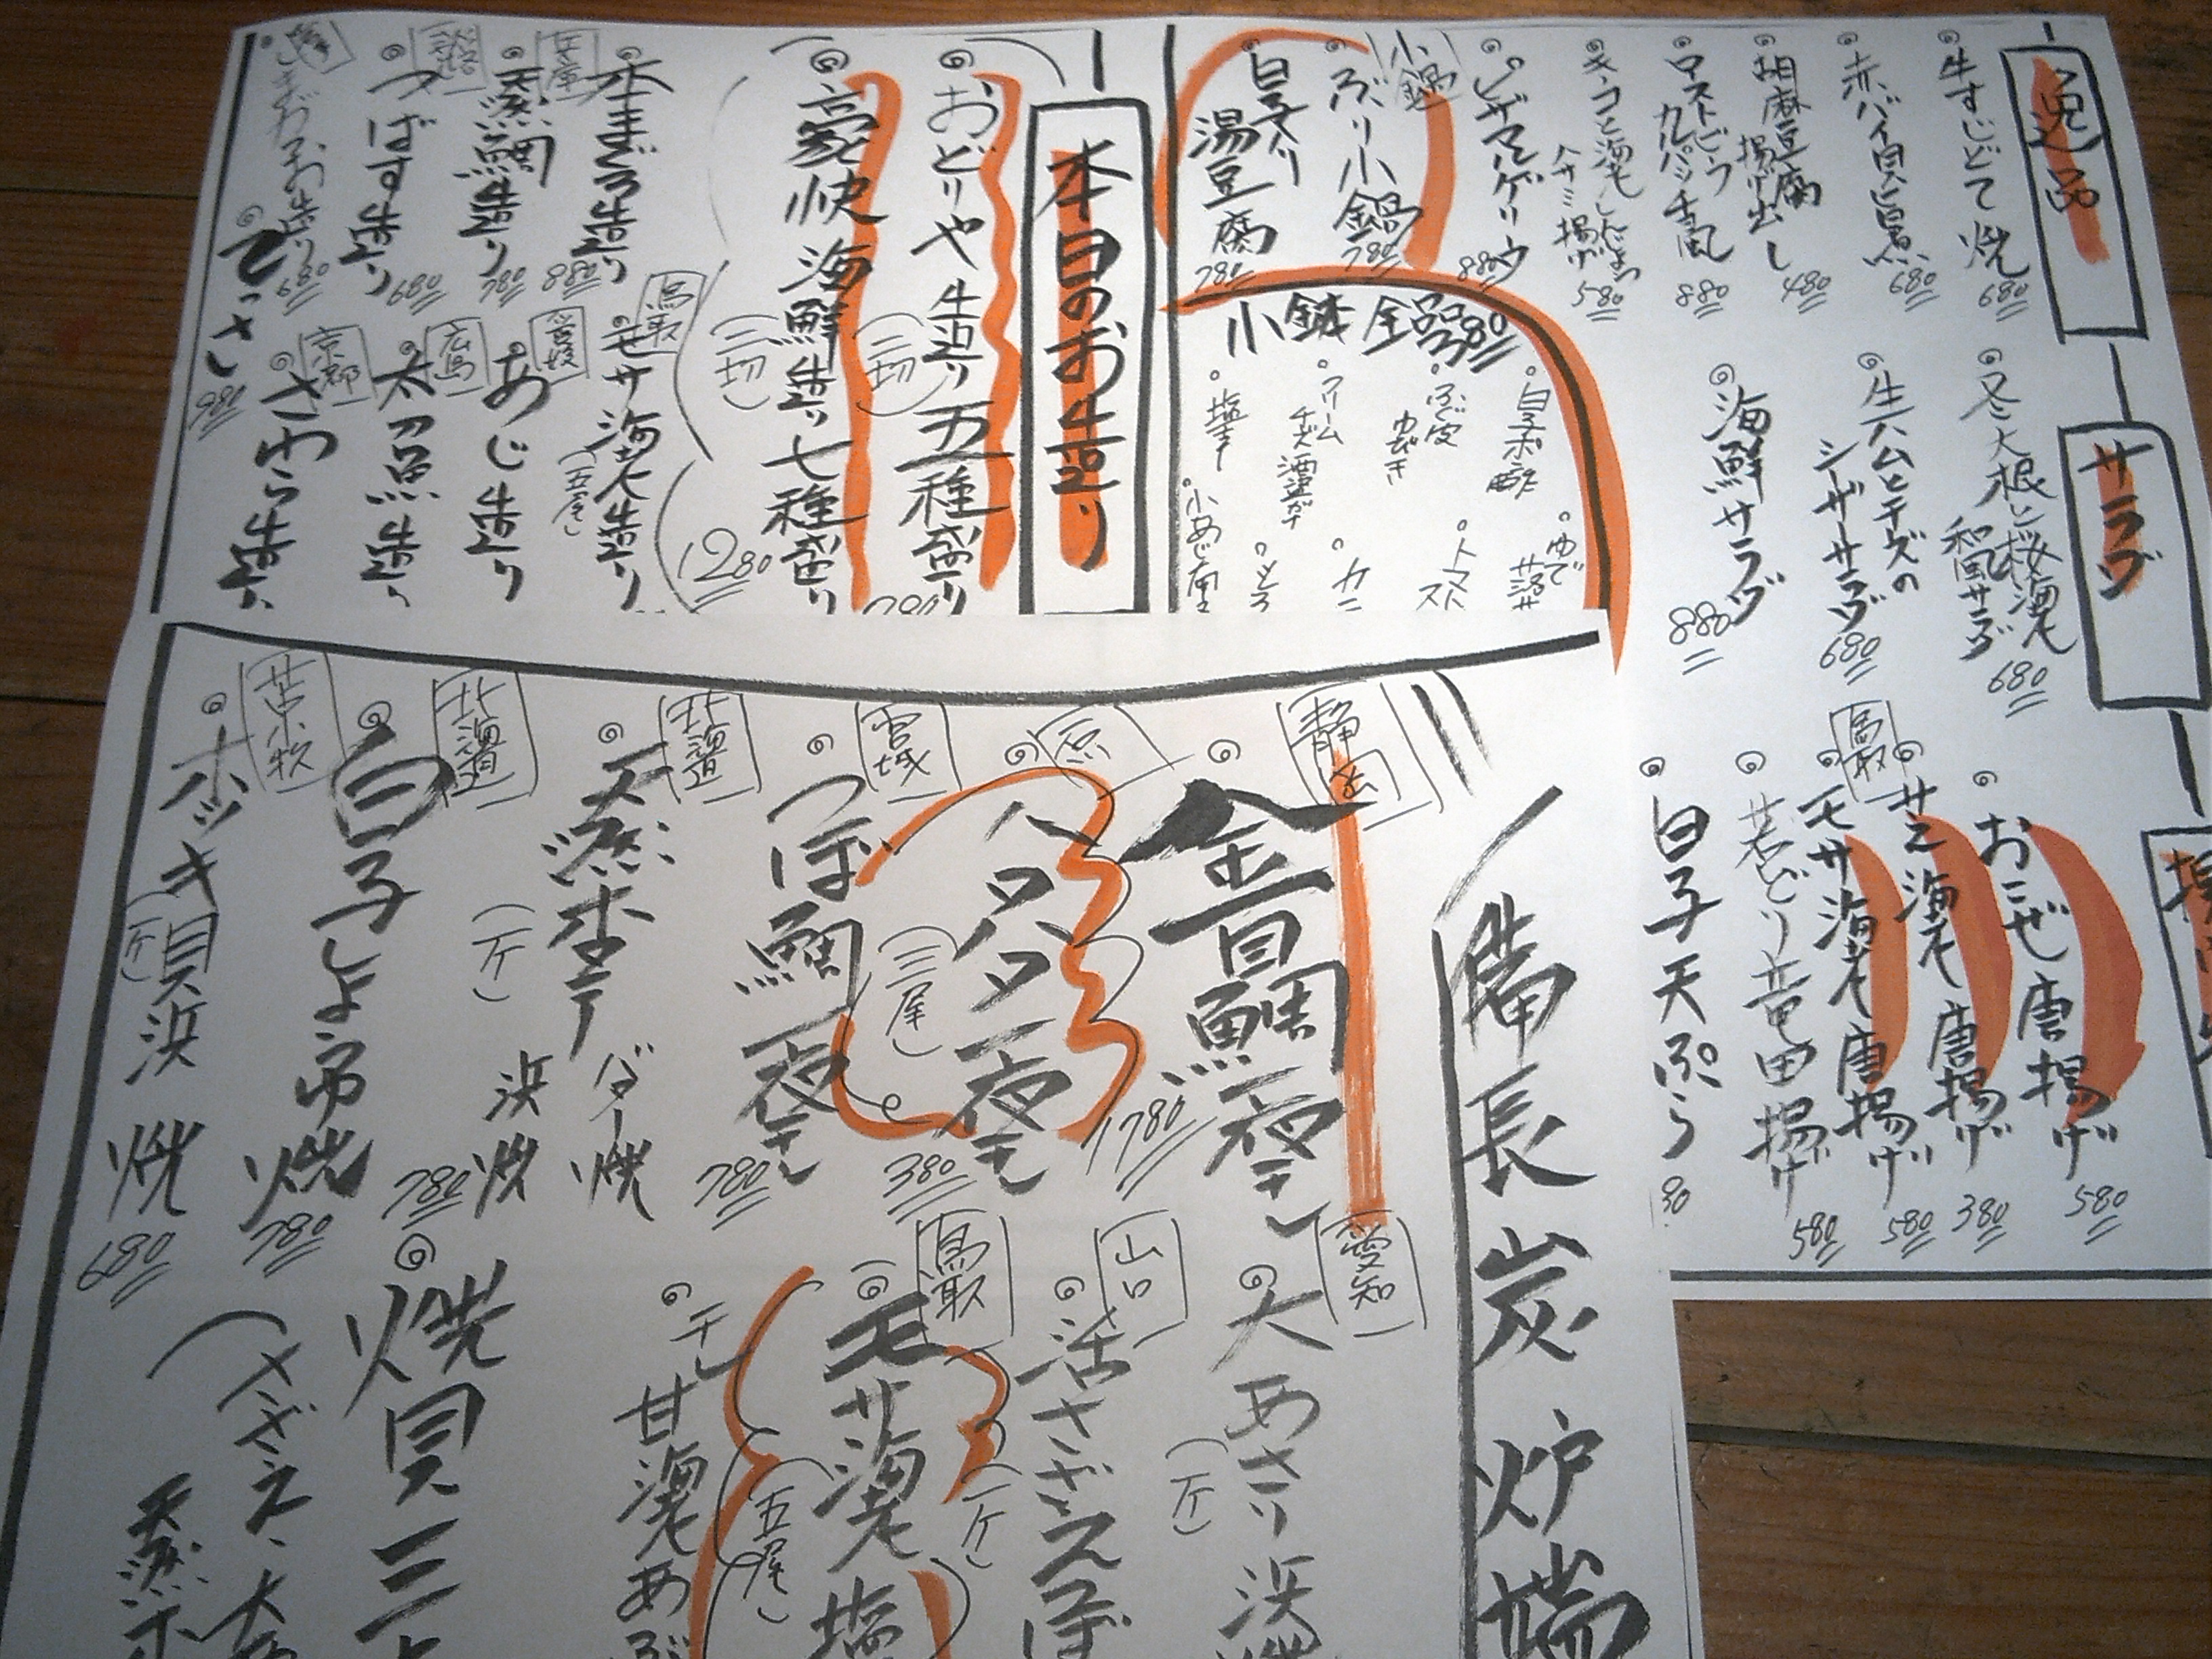 逸品
牛すじどて焼
680
赤バイ貝旨煮
680
胡麻豆腐
揚げ出し
480
ローストビーフ
カルパッチョ風
880
キノコと海老しんじょう
ハサミ揚げ
580
ピザマルゲリータ
880
小鍋
ぶり小鍋
780
白子入り
湯豆腐
780
小鉢全品380
白子ポン酢
ふぐ皮
ゆびき
クリームチーズ酒盗がけ
塩辛
サラダ
冬大根と桜海老
和風サラダ
680
生ハムとチーズの
シーザーサラダ
680
海鮮サラダ
880
おこぜ唐揚げ
580
サヱ海老唐揚げ
380
鳥取
モサ海老唐揚げ
580
若どり竜田揚げ
580
白子天ぷら
本日のお造り
おどりや造り五種盛り
(二切)
豪快海鮮造り七種盛り
(二切)
1280
本まぐろ造り
880
兵庫
天然鯛造り
780
淡路
つばす造り
680
680
てっさ
980
鳥取
モサ海老造り
(五尾)
愛媛
あじ造り
広島
太刀魚造り
京都
さわら造り
備長炭炉端
静岡
金目鯛一夜干し
1780
ハタハタ一夜干し
(三尾)
380
宮城
つぼ鯛一夜干し
780
北海道
天然ホタテ
(一ケ)
バター焼
浜焼
780
北海道
白子しょう油焼
780
苫小牧
ホッキ貝浜焼
(一ケ)
680
愛知
大あさり浜焼
(一ケ)
山口
活さざえつぼ
(一ケ)
鳥取
モサ海老塩
(五尾)
干し甘海老あぶ
焼貝三
(さざえ、大
天然ホ